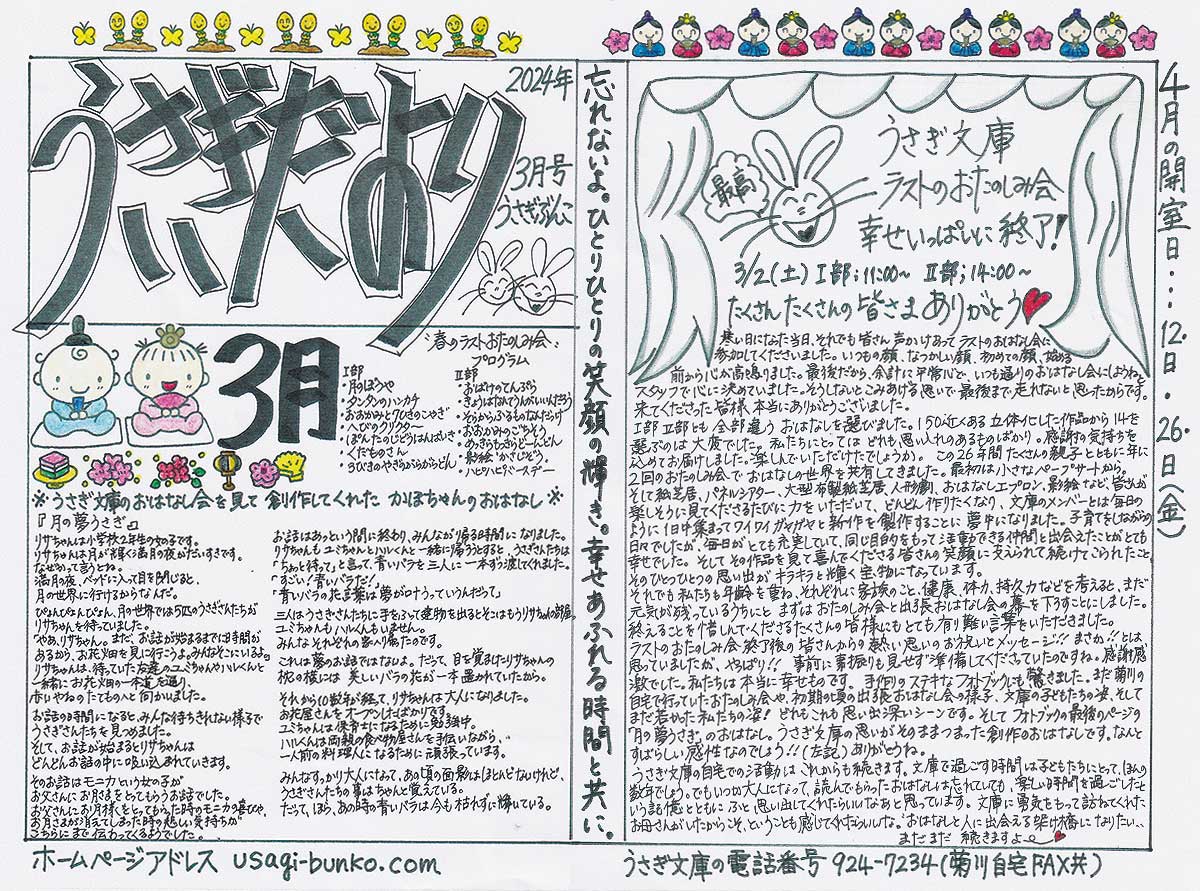 うさぎだより
2024年
3月号
うさぎぶんこ
3月
春のラストおたのしみ会
プログラム
I部
・月のぼうや
・タンタンのハンカチ
・おおかみと7ひきのこやぎ
・へびのクリクター
・ぽんたのじどうはんばいき
・くだものさん
・3びきのやぎのがらがらどん
II部
・おばけのてんぷら
・きょうはなんてうんがいいんだろう
・そらからふるものなんだっけ
・おおかみのごちそう
・めっきらもっきらどーんどん
・影絵「かさじぞう」
・ハッピーバースデー
※うさぎ文庫のおはなし会を見て創作してくれた かほちゃんのおはなし※
『月の夢うさぎ』
リサちゃんは小学校2年生の女の子です。
リサちゃんは月が輝く満月の夜がだいすきです。
なぜかって言うとね。
満月の夜、ベッドに入って目を閉じると、
月の世界に行けるからなんだ。
ぴょんぴょんぴょん、月の世界では5匹のうさぎさんたちが
リサちゃんを待っていました。
「やあ、リサちゃん。まだ、お話が始まるまでは時間が
あるから、お花畑を見に行こうよ。みんなそこにいるよ。」
リサちゃんは、待っていた友達のユミちゃんやハルくんと
一緒にお花畑の一本道を通り、
赤いやねのたてものへと向かいました。
お話の時間になると、みんな待ちきれない様子で
うさぎさんたちを見つめました。
そして、お話が始まるとリサちゃんは
どんどんお話の中に吸い込まれていきます。
そのお話はモニカという女の子が
お父さんにお月さまをとってもらうお話でした。
お父さんにお月様をとってもらった時のモニカの喜びや、
お月さまが消えてしまった時の悲しい気持ちが
こちらにまで伝わってくるようでした。
お話はあっという間に終わり、みんなが帰る時間になりました。
リサちゃんもユミちゃんとハルくんと一緒に帰ろうとすると、うさぎさんたちは
「ちょっと待って」と言って、青いバラを三人に一本ずつ渡してくれました。
「すごい！青いバラだ！」
「青いバラの花言葉は夢が叶うっていうんだって。」
三人はうさぎさんたちに手をふって建物を出るとそこはもうリサちゃんの部屋。
ユミちゃんもハルくんもいません。
みんなそれぞれの家へ帰ったのです。
これは夢のお話ではないよ。だって、目を覚ましたリサちゃんの
枕の横には美しいバラの花が一本置かれていたから。
それから10数年が経って、リサちゃんは大人になりました。
お花屋さんをオープンしたばかりです。
ユミちゃんは保育士になるために勉強中。
ハルくんは両親の食べ物屋さんを手伝いながら、
一人前の料理人になるために頑張っています。
みんなすっかり大人になって、あの頃の面影はほとんどないけれど、
うさぎさんたちの事はちゃんと覚えている。
だって、ほら、あの時の青いバラは今も枯れずに輝いている。
ホームページアドレス usagi-bunko.com
忘れないよ。ひとりひとりの笑顔の輝き。幸せあふれる時間と共に。
最高
うさぎ文庫
ラストのおたのしみ会
幸せいっぱいに終了！
3/2(土) I部；11:00〜 II部；14:00〜
たくさんたくさんの皆さまありがとう
寒い日になった当日、それでも皆さん声かけあってラストのおはなし会に
参加してくださいました。いつもの顔、なつかしい顔、初めての顔、始める
前から心が高鳴りました。最後だから、余計に平常心で、いつも通りのおはなし会にしようね。と
スタッフで心に決めていました。そうしないとこみあげる思いで最後まで走れないと思ったからです。
来てくださった皆様、本当にありがとうございました。
I部II部とも全部違うおはなしを選びました。150近くある立体化した作品から14を
選ぶのは大変でした。私たちにとってはどれも思い入れのあるものばかり。感謝の気持ちを
込めてお届けしました。楽しんでいただけたでしょうか。この26年間たくさんの親子とともに年に
2回のおたのしみ会でおはなしの世界を共有してきました。最初は小さなペープサートから。
そして紙芝居、パネルシアター、大型布製紙芝居、人形劇、おはなしエプロン、影絵など、皆さんが
楽しそうに見てくださるたびに力をいただいて、どんどん作りたくなり、文庫のメンバーとは毎日の
ように1日中集まってワイワイガヤガヤと新作を製作することに夢中になりました。子育てをしながらの
日々でしたが、毎日がとても充実していて、同じ目的をもって活動できる仲間と出会えたことがとても
幸せでした。そしてその作品を見て喜んでくださる皆さんの笑顔に支えられて続けてこられたこと、
そのひとつひとつの思い出がキラキラと輝く宝物になっています。
それでも私たちも年齢を重ね、それぞれに家族のこと、健康、体力、持久力などを考えると、まだ
元気が残っているうちに、まずはおたのしみ会と出張おはなし会の幕を下ろすことにしました。
終えることを惜しんでくださるたくさんの皆様にもとても有り難い言葉をいただきました。
ラストのおたのしみ会終了後の皆さんからの熱い思いのお祝いとメッセージ!! まさか!!とは
思っていましたが、やっぱり!! 事前に素振りも見せず準備してくださっていたのですね。感謝感
激でした。私たちは本当に幸せものです。手作りのステキなフォトブックにも驚きました。まだ菊川の
自宅で行っていたおたのしみ会や、初期の頃の出張おはなし会の様子、文庫の子どもたちの姿、そして
まだ若かった私たちの姿！どれもこれも思い出深いシーンです。そしてフォトブックの最後のページの
「月の夢うさぎ」のおはなし。うさぎ文庫の思いがそのままつまった創作のおはなしです。なんと
すばらしい感性なのでしょう!!(左記)ありがとうね。
うさぎ文庫の自宅での活動はこれからも続きます。文庫で過ごす時間は子どもたちにとって、ほんの
数年でしょう。でもいつか大人になって、読んでもらったおはなしは忘れていても、楽しい時間を過ごしたと
いう記憶とともにふと思い出してくれたらいいなあと思っています。文庫に勇気をもって訪ねてくれた
お母さんがいたからこそ、ということも感じてくれたらいいな。おはなしと人に出会える架け橋になりたい‥
まだまだ続きますよ〜
4月の開室日…12日・26日(金)
うさぎ文庫の電話番号 924-7234(菊川自宅FAX共)